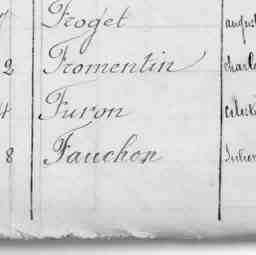 Froget august
2 Fromentin charle
4 Furon
8 Fauchon Julien